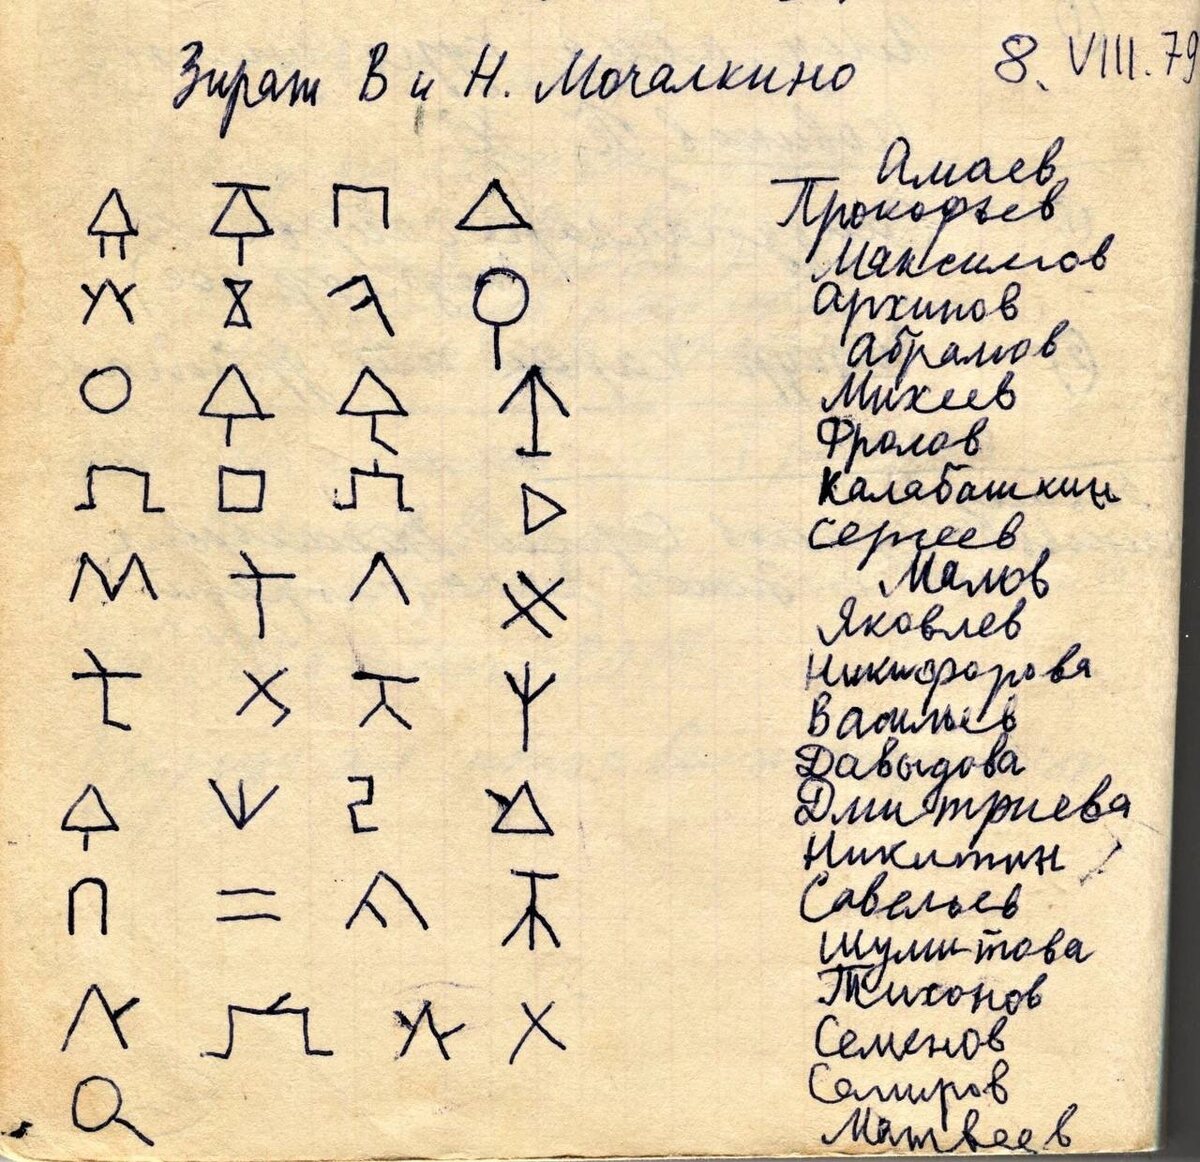 Зират В и Н. Мочалкино 8. VIII. 79
Амаев
Прокофьев
Максимов
Архипов
Абрамов
Михеев
Фролов
Калабашкин
Сергеев
Малов
Яковлев
Никифорова
Васильев
Давыдова
Дмитриева
Никитин
Савельев
Шумитова
Тихонов
Семенов
Семиров
Матвеев